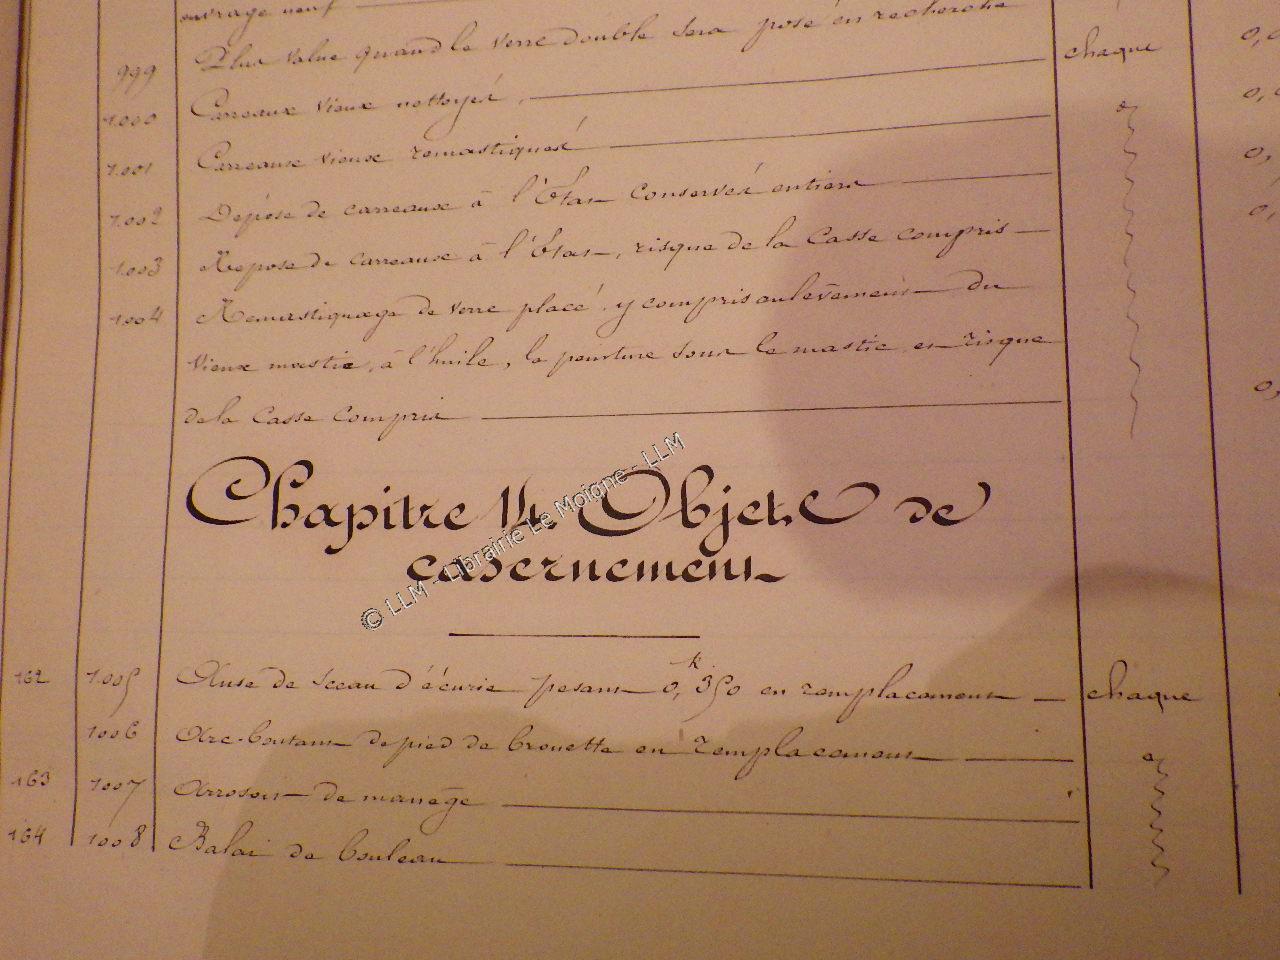 ouvrage neuf
999 Plus value quand le verre double sera posé en recherche chaque 0,
1.000 Carreaux vieux nettoyés, 0,
1.001 Carreaux vieux remastiqués 0,
1.002 Dépose de carreaux à l'État conservés entiers 0,
1.003 Repose de carreaux à l'État, risque de la casse compris
1.004 Remastiquage de verre placé, y compris enlèvement du
vieux mastic, à l'huile, la peinture sous le mastic et risque
de la casse compris 0,
Chapitre 14 Objets de
casernement
© LLM - Librairie Le Moigne - LLM
162 1.005 Anse de sceau d'écurie pesant 0,k350 en remplacement chaque
1006 Arc-boutant de pied de brouette en remplacement
163 1007 Arrosoir de manège
164 1008 Balai de bouleau